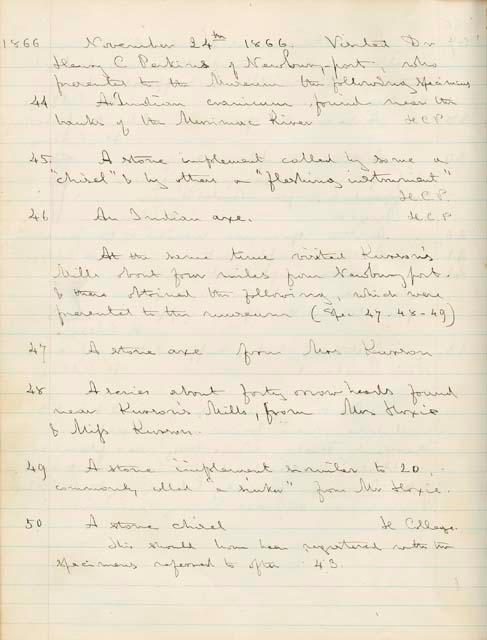 1866 November 24th 1866. Visited Dr
Henry C Perkins of Newburyport, who
presented to the Museum the following specimens
44 An Indian cranium found near the
banks of the Merrimac River H.C.P.
45 A stone implement called by some a
"chisel" & by others a "fleshing instrument"
H.C.P.
46 An Indian axe. H.C.P
At the same time visited Kurson's
Mills about four miles from Newburyport.
& there obtained the following, which were
presented to the museum (Spec 47-48-49)
47 A stone axe from Mrs Kurson
48 A series about forty arrowheads found
near Kurson's Mills, from Mrs Hoxie
& Miss Kurson.
49 A stone implement similar to 20,
commonly called "a sinker" from Mr Hoxie.
50 A stone chisel H College.
This should have been registered with the
specimens referred to after 43.